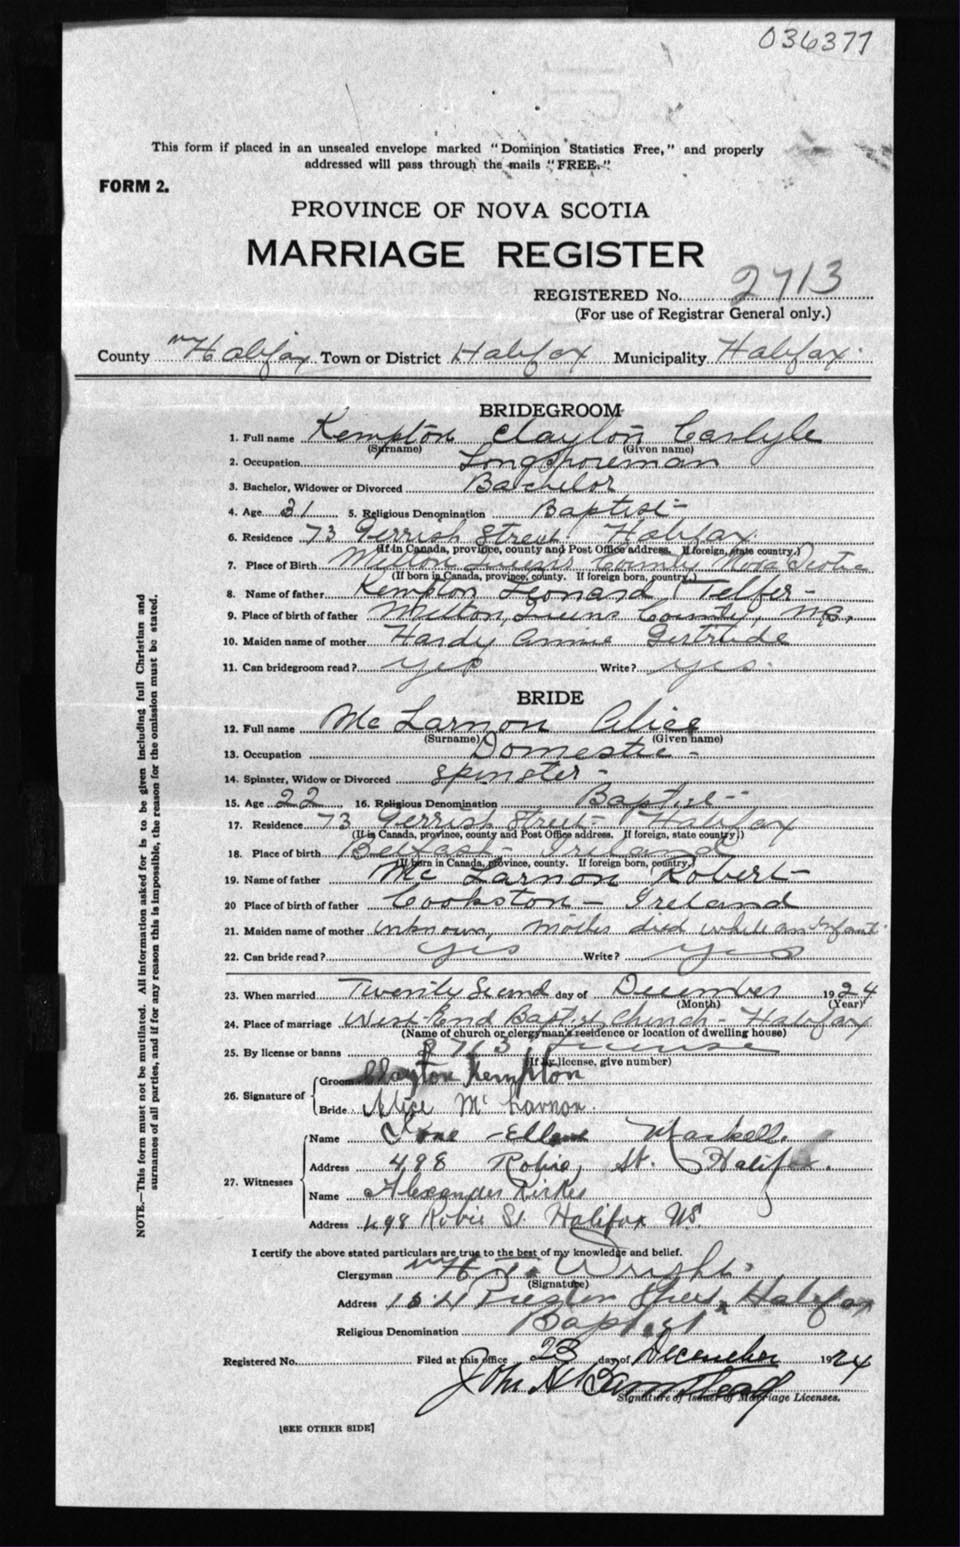 036377
This form if placed in an unsealed envelope marked "Dominion Statistics Free," and properly
addressed will pass through the mails "FREE."
FORM 2.
PROVINCE OF NOVA SCOTIA
MARRIAGE REGISTER
REGISTERED No. 2713
(For use of Registrar General only.)
County Halifax Town or District Halifax Municipality Halifax
BRIDEGROOM
1. Full name Kempton Clayton Carlyle
(Surname) (Given name)
2. Occupation Longshoreman
3. Bachelor, Widower or Divorced Bachelor
4. Age 31 5. Religious Denomination Baptist
6. Residence 73 Gerrish Street Halifax
(If in Canada, province, county and Post Office address. If foreign, state country.)
7. Place of Birth Milton Queens County Nova Scotia
(If born in Canada, province, county. If foreign born, country.)
8. Name of father Kempton Leonard Telfer
9. Place of birth of father Milton Queens County, N.S.
10. Maiden name of mother Hardy Annie Gertrude
11. Can bridegroom read? yes Write? yes
BRIDE
12. Full name Mc Larnon Alice
(Surname) (Given name)
13. Occupation Domestic
14. Spinster, Widow or Divorced Spinster
15. Age 22 16. Religious Denomination Baptist
17. Residence 73 Gerrish Street Halifax
(If in Canada, province, county and Post Office Address. If foreign, state country.)
18. Place of birth Belfast Ireland
(If born in Canada, province, county. If foreign born, country.)
19. Name of father Mc Larnon Robert
20 Place of birth of father Cookston Ireland
21. Maiden name of mother unknown, mother died while an infant
22. Can bride read? yes Write? yes
23. When married Twenty Second day of December 1924
(Month) (Year)
24. Place of marriage West End Baptist Church Halifax
(Name of church or clergyman's residence or location of dwelling house)
25. By license or banns 8713 license
(If by license, give number)
26. Signature of
Groom Clayton Kempton
Bride Alice McLarnon.
27. Witnesses
Name Ellene Maskell
Address 498 Robie, St. Halifax.
Name Alexander
Address 498 Robie St. Halifax NS.
I certify the above stated particulars are true to the best of my knowledge and belief.
Clergyman Wright
(Signature)
Address Preston Street, Halifax
Religious Denomination Baptist
Registered No. Filed at this office 23 day of December 1924
John
Signature of Issuer of Marriage Licenses.
[SEE OTHER SIDE]
NOTE.—This form must not be mutilated. All information asked for is to be given including full Christian and
surnames of all parties, and if for any reason this is impossible, the reason for the omission must be stated.